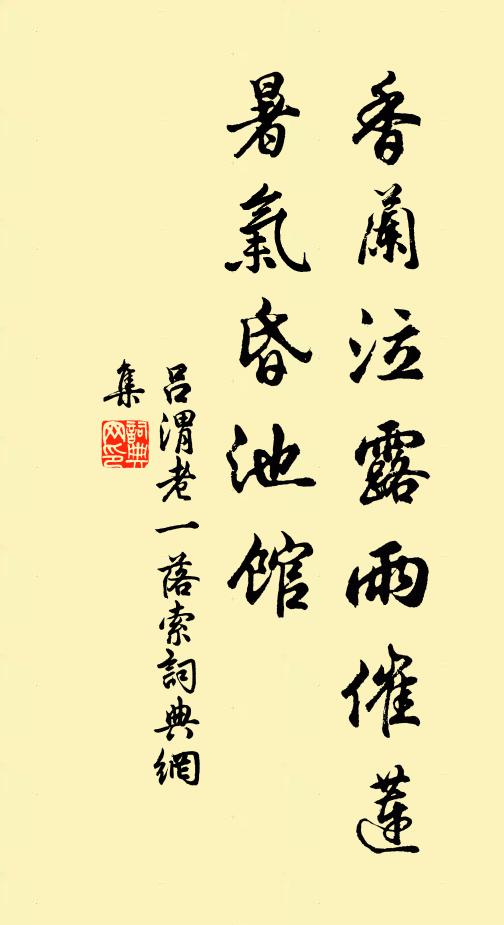 香蘭泣露雨催蓮
暑氣昏池館
呂渭老一落索詞典網
集
詞典網印